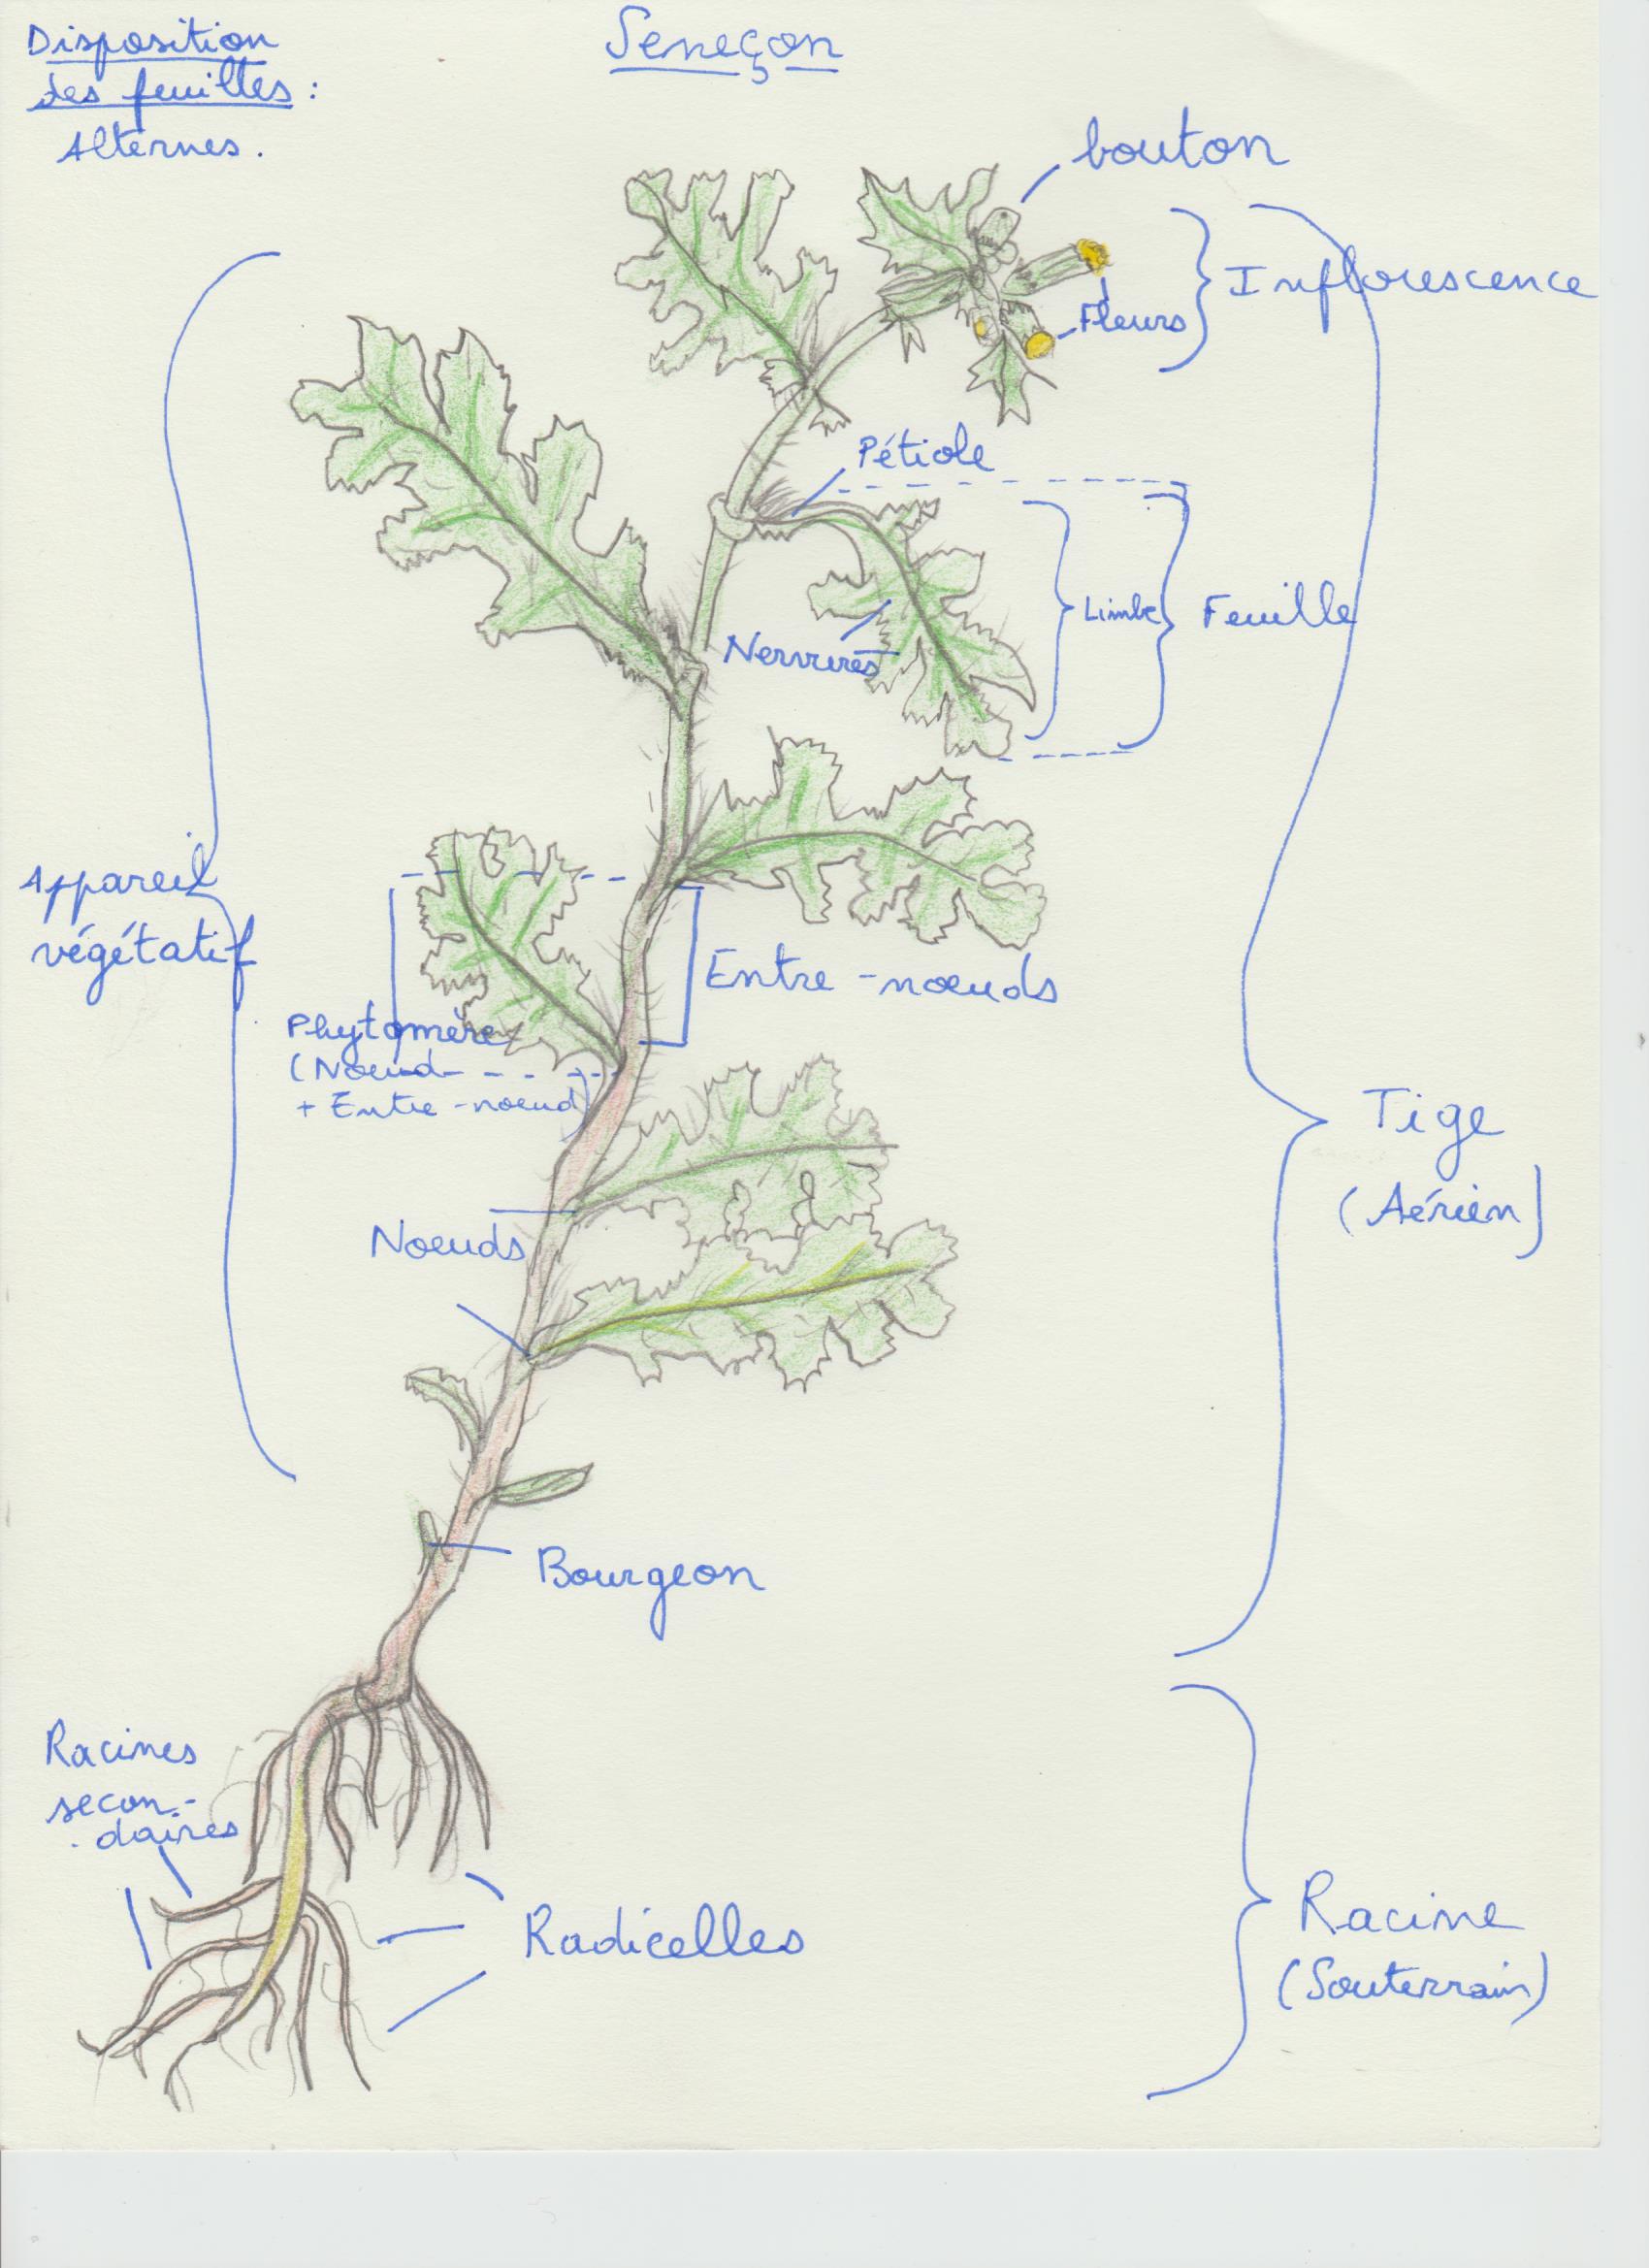 Disposition
des feuilles :
Alternes.
Seneçon
bouton
Inflorescence
Fleurs
Pétiole
Limbe
Feuille
Nervures
Appareil
végétatif
Entre-noeuds
Phytomère
(Noeud
+ Entre-noeud)
Tige
(Aérien)
Noeuds
Bourgeon
Racines
secon-
daires
Radicelles
Racine
(Souterrain)